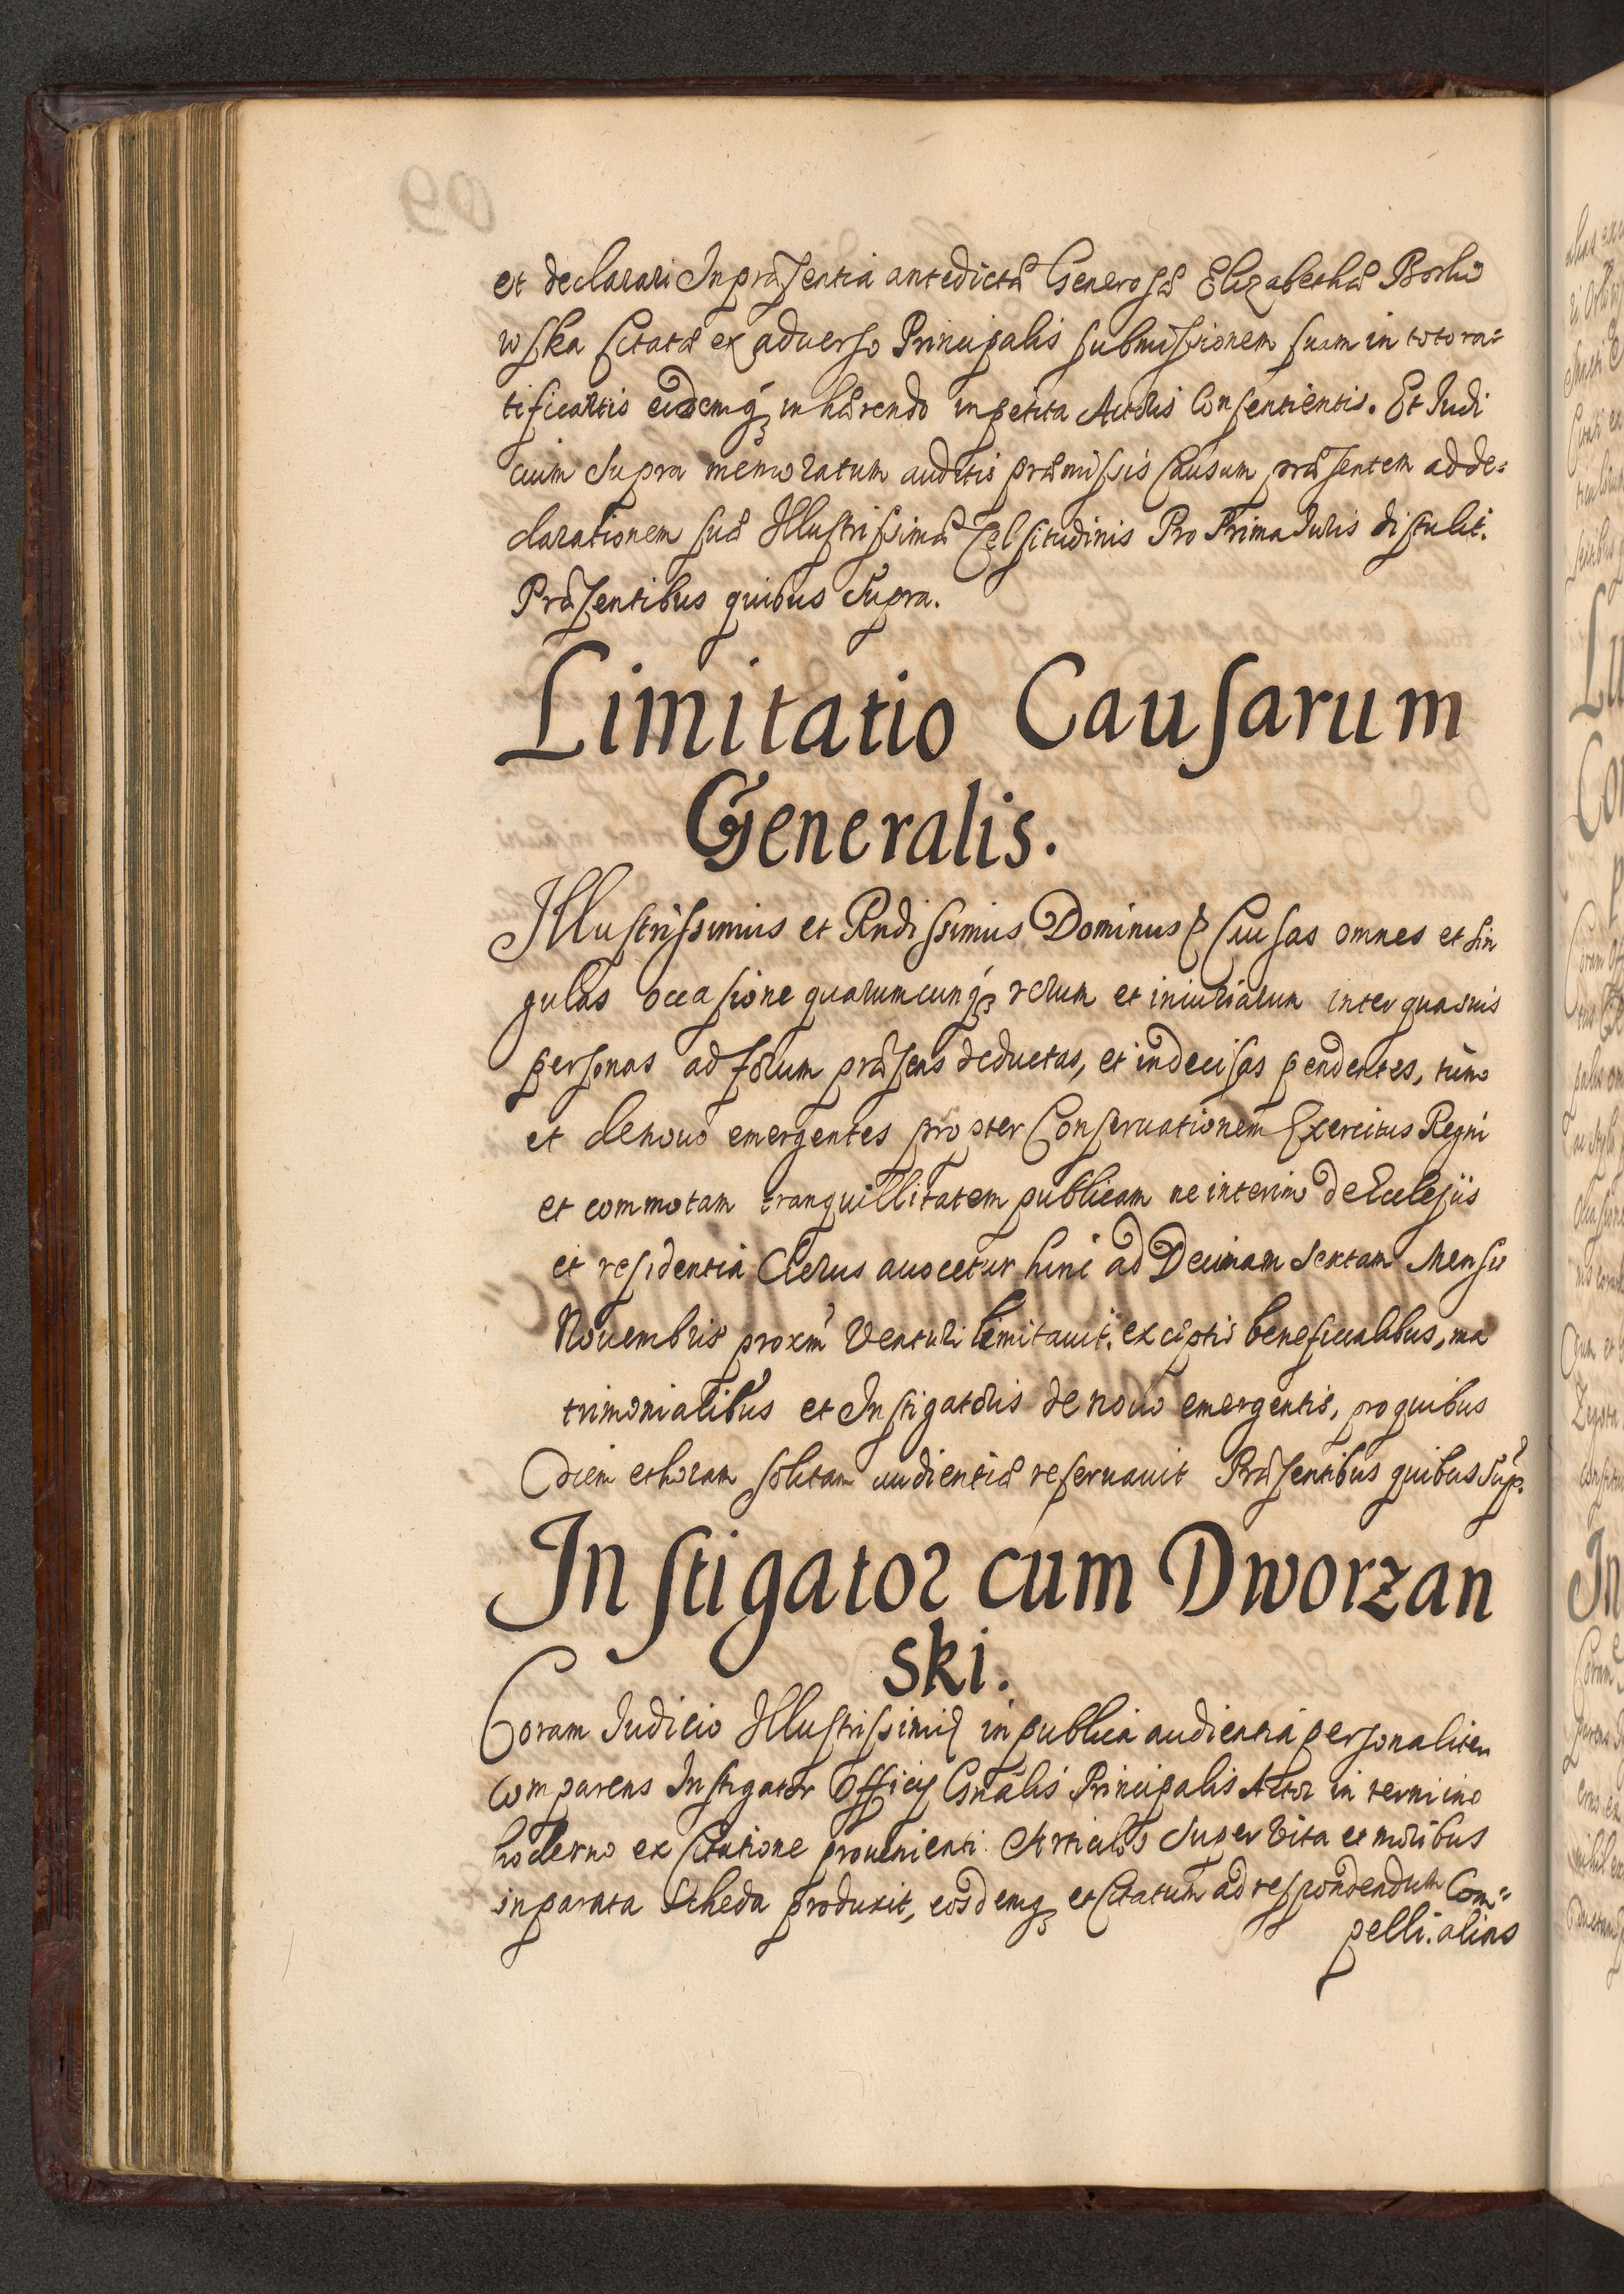 et declarari In præsentia antedictæ Generosæ Elizabethæ Borko
wska Citatæ ex aduerso Principalis submissionem suam in toto ra=
tificantis eidemq₃ inhærendo in petita Actoris Consentientis. Et Judi
cium Supra memoratum auditis præmissis Causam præsentem ad de=
clarationem suæ Illustrissimæ Celsitudinis Pro Prima Juris distulit.
Præsentibus quibus Supra.
Limitatio Causarum
Generalis.
Illustrissimus et Rndissimus Dominus Causas omnes et sin
gulas occasione quarumcunq₃ rerum et iniuriarum inter quasuis
personas ad forum præsens deductas, et indecisas pendentes, tum
et denouo emergentes propter Conseruationem Exercitus Regni
et commotam tranquillitatem publicam ne interim de Ecclesiis
et residentia Clerus auocetur hinc ad Decimam Sextam Mensis
Nouembris proxm̃ Venturi limitauit. exceptis beneficialibus, ma
trimonialibus et Instigatoris de nouo emergentis, pro quibus
diem et horam solitam audientiæ reseruauit Præsentibus quibus Sup.
Instigator cum Dworzan
ski.
Coram Judicio Illustrissimi in publica audientia personaliter
comparens Instigator Officij Gnãlis Principalis Actor in termino
hodierno ex Citatione prouenienti Articulos Super Vita et moribus
in parata Scheda produxit, eosdemq₃ et Citatum ad respondendum Com=
pelli. alias